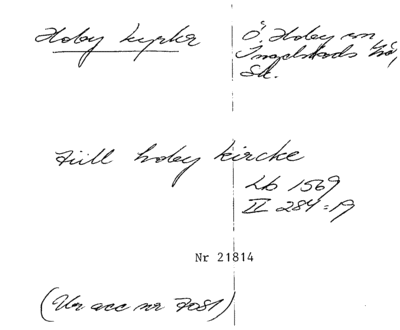 Hoby kyrka
Ö. Hoby sn,
Ingelstads hd,
Sk.
till hoby kircke
Lb 1569
II 284:19
Nr 21814
(Ur acc nr 7081)